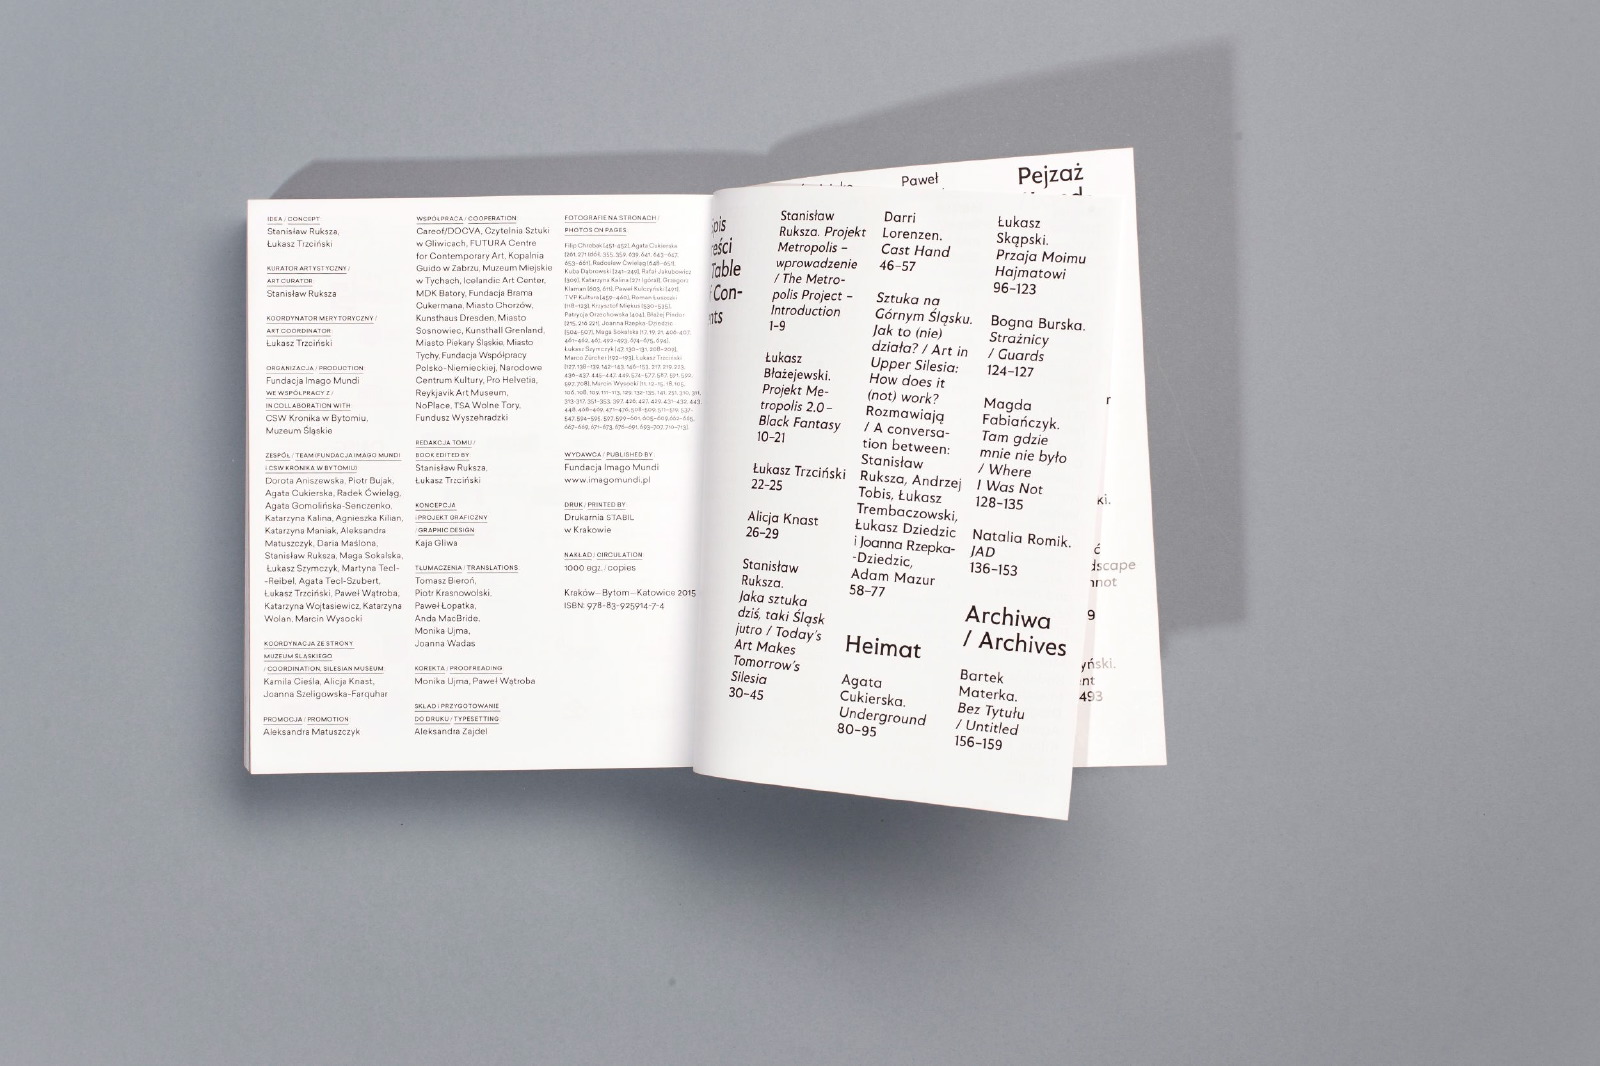 IDEA / CONCEPT
Stanisław Ruksza,
Łukasz Trzciński
KURATOR ARTYSTYCZNY /
ART CURATOR
Stanisław Ruksza
KOORDYNATOR MERYTORYCZNY /
ART COORDINATOR
Łukasz Trzciński
ORGANIZACJA / PRODUCTION
Fundacja Imago Mundi
WE WSPÓŁPRACY Z /
IN COLLABORATION WITH
CSW Kronika w Bytomiu,
Muzeum Śląskie
ZESPÓŁ / TEAM (FUNDACJA IMAGO MUNDI
I CSW KRONIKA W BYTOMIU)
Dorota Aniszewska, Piotr Bujak,
Agata Cukierska, Radek Ćwieląg,
Agata Gomolińska-Senczenko,
Katarzyna Kalina, Agnieszka Kilian,
Katarzyna Maniak, Aleksandra
Matuszczyk, Daria Maślona,
Stanisław Ruksza, Maga Sokalska,
Łukasz Szymczyk, Martyna Tecl-
-Reibel, Agata Tecl-Szubert,
Łukasz Trzciński, Paweł Wątroba,
Katarzyna Wojtasiewicz, Katarzyna
Wolan, Marcin Wysocki
KOORDYNACJA ZE STRONY
MUZEUM ŚLĄSKIEGO
/ COORDINATION, SILESIAN MUSEUM
Kamila Cieśla, Alicja Knast,
Joanna Szeligowska-Farquhar
PROMOCJA / PROMOTION
Aleksandra Matuszczyk
WSPÓŁPRACA / COOPERATION
Careof/DOCVA, Czytelnia Sztuki
w Gliwicach, FUTURA Centre
for Contemporary Art, Kopalnia
Guido w Zabrzu, Muzeum Miejskie
w Tychach, Icelandic Art Center,
MDK Batory, Fundacja Brama
Cukermana, Miasto Chorzów,
Kunsthaus Dresden, Miasto
Sosnowiec, Kunsthall Grenland,
Miasto Piekary Śląskie, Miasto
Tychy, Fundacja Współpracy
Polsko-Niemieckiej, Narodowe
Centrum Kultury, Pro Helvetia,
Reykjavik Art Museum,
NoPlace, TSA Wolne Tory,
Fundusz Wyszehradzki
REDAKCJA TOMU /
BOOK EDITED BY
Stanisław Ruksza,
Łukasz Trzciński
KONCEPCJA
I PROJEKT GRAFICZNY
/ GRAPHIC DESIGN
Kaja Gliwa
TŁUMACZENIA / TRANSLATIONS
Tomasz Bieroń,
Piotr Krasnowolski,
Paweł Łopatka,
Anda MacBride,
Monika Ujma,
Joanna Wadas
KOREKTA / PROOFREADING
Monika Ujma, Paweł Wątroba
SKŁAD I PRZYGOTOWANIE
DO DRUKU / TYPESETTING
Aleksandra Zajdel
FOTOGRAFIE NA STRONACH /
PHOTOS ON PAGES
Filip Chrobak [451-452], Agata Cukierska
653-661], Radosław Ćwieląg [648-651],
Kuba Dąbrowski [241-249], Rafał Jakubowicz
[309], Katarzyna Kalina [271 (góra)], Grzegorz
Klaman [603, 611], Paweł Kulczyński [491],
TVP Kultura [459-460], Roman Łuszczki
[118-123], Krzysztof Miękus [530-535],
Patrycja Orzechowska [404], Błażej Pindor
[215, 216 221], Joanna Rzepka-Dziedzic
WYDAWCA / PUBLISHED BY
Fundacja Imago Mundi
www.imagomundi.pl
DRUK / PRINTED BY
Drukarnia STABIL
w Krakowie
NAKŁAD / CIRCULATION
1000 egz. / copies
Kraków—Bytom—Katowice 2015
ISBN: 978-83-925914-7-4
Table
Con-
Stanisław
Ruksza. Projekt
Metropolis –
wprowadzenie
/ The Metro-
polis Project –
Introduction
1–9
Łukasz
Błażejewski.
Projekt Me-
tropolis 2.0 –
Black Fantasy
10–21
Łukasz Trzciński
22–25
Alicja Knast
26–29
Stanisław
Ruksza.
Jaka sztuka
dziś, taki Śląsk
jutro / Today's
Art Makes
Tomorrow's
Silesia
30–45
Darri
Lorenzen.
Cast Hand
46–57
Sztuka na
Górnym Śląsku.
Jak to (nie)
działa? / Art in
Upper Silesia:
How does it
(not) work?
Rozmawiają
/ A conversa-
tion between:
Stanisław
Ruksza, Andrzej
Tobis, Łukasz
Trembaczowski,
Łukasz Dziedzic
i Joanna Rzepka-
-Dziedzic,
Adam Mazur
58–77
Heimat
Agata
Cukierska.
Underground
80–95
Łukasz
Skąpski.
Przaja Moimu
Hajmatowi
96–123
Bogna Burska.
Strażnicy
/ Guards
124–127
Magda
Fabiańczyk.
Tam gdzie
mnie nie było
/ Where
I Was Not
128–135
Natalia Romik.
JAD
136–153
Archiwa
/ Archives
Bartek
Materka.
Bez Tytułu
/ Untitled
156–159
Paweł
Pejzaż